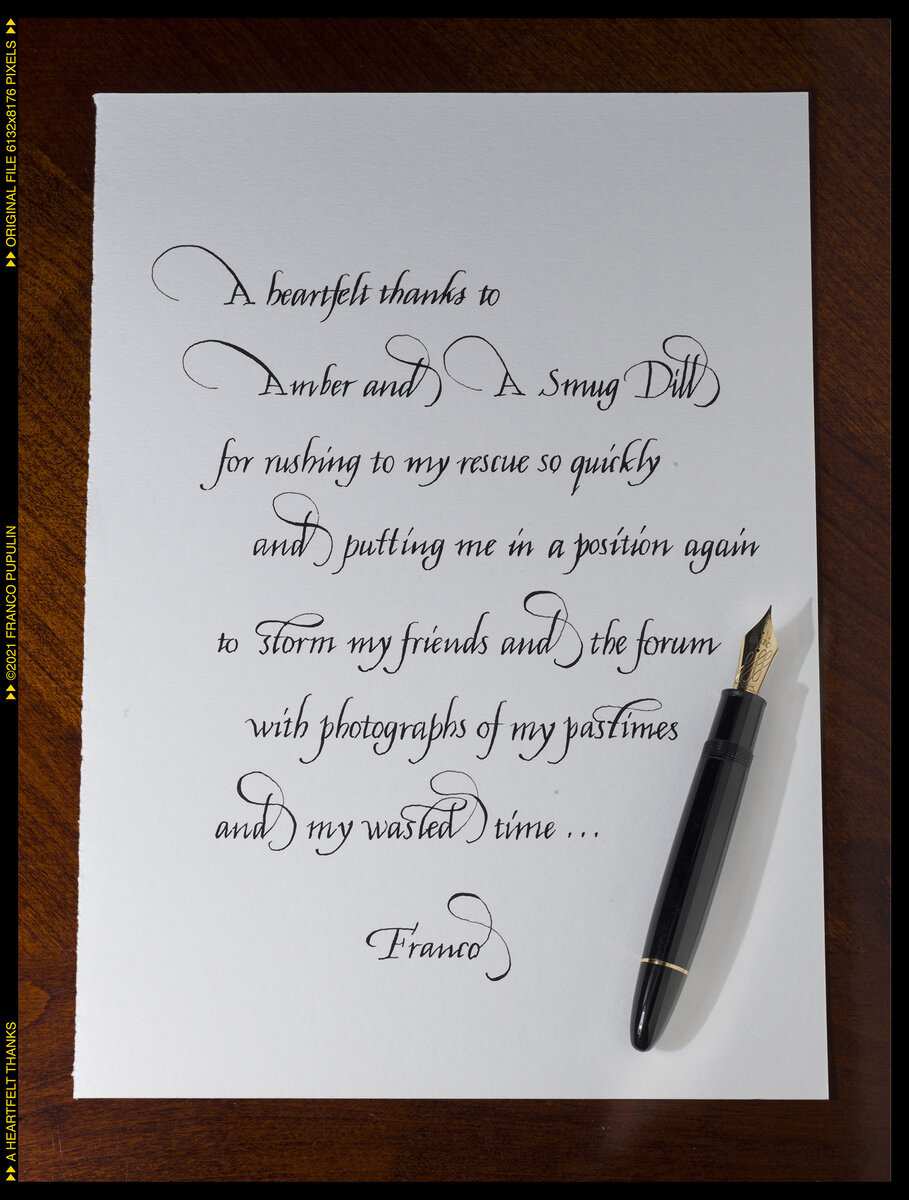 A heartfelt thanks to
Amber and A Smug Dill
for rushing to my rescue so quickly
and putting me in a position again
to storm my friends and the forum
with photographs of my pastimes
and my wasted time ...
Franco
▸▸ A HEARTFELT THANKS
▸▸ ©2021 FRANCO PUPULIN
▸▸ ORIGINAL FILE 6132x8176 PIXELS ▸▸